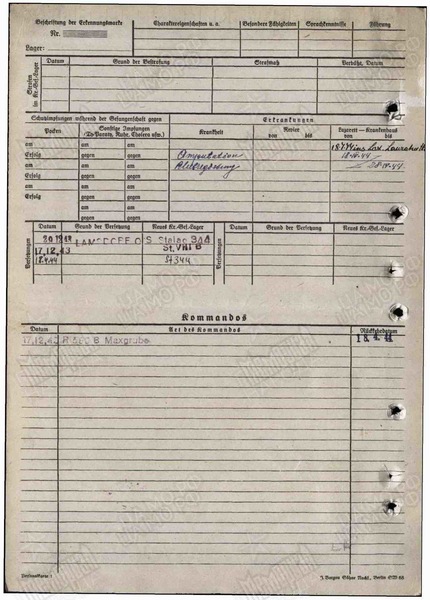 Beschriftung der Erkennungsmarke
Nr.
Lager:
Charaktereigenschaften u. a.
Besondere Fähigkeiten
Sprachkenntnisse
Führung
Strafen im Kr.-Gef.-Lager
Datum
Grund der Bestrafung
Strafmaß
Verbüßt, Datum
Schutzimpfungen während der Gefangenschaft gegen
Erkrankungen
Pocken
Sonstige Impfungen
(Ty.-Paraty., Ruhr, Cholera usw.)
Krankheit
Revier
von bis
Lazarett — Krankenhaus
von bis
am am am
Erfolg gegen gegen Amputation
am am am
Erfolg gegen gegen
am am am
Erfolg gegen gegen
am am
gegen gegen
am am
gegen gegen
Versetzungen
Datum
Grund der Versetzung
Neues Kr.-Gef.-Lager
Versetzungen
Datum
Grund der Versetzung
Neues Kr.-Gef.-Lager
LAMSDORF O/S. Stalag 344
17.12.43 St. VIII B
18.4.44 St 344
Kommandos
Datum
Art des Kommandos
Rückkehrdatum
17.12.43 B Maxgrube 18. 4. 44
Personalkarte I
Berlin SW 68